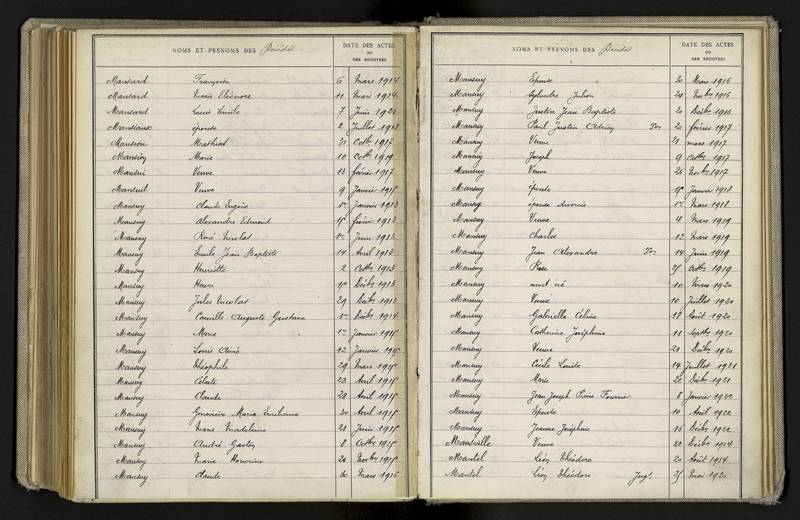 NOMS ET PRÉNOMS DES Décédés DATE DES ACTES OU DES REGISTRES
Mansard François 6 Mars 1914
Mansard Marie Eléonore 11 Mars 1914
Mansard Louis Emile 7 Juin 1920
Mansiaux épouse 2 Juillet 1918
Mansion Mathias 31 Octbre 1917
Mansion Marie 10 Octbre 1919
Mansui Veuve 13 février 1917
Mansuit Veuve 9 Janvier 1918
Mansuy Claude Eugène Janvier 1913
Mansuy Alexandre Edmond février 1913
Mansuy René Nicolas Juin 1913
Mansuy Emile Jean Baptiste 14 Avril 1913
Mansuy Henriette 2 Octbre 1913
Mansuy Henri Décbre 1913
Mansuy Jules Nicolas 29 Décbre 1913
Mansuy Camille Auguste Gustave Décbre 1914
Mansuy Marie Janvier 1915
Mansuy Louis Aimé 12 Janvier 1915
Mansuy Théophile 29 Mars 1915
Mansuy Céleste 23 Avril 1915
Mansuy Claude 28 Avril 1915
Mansuy Geneviève Maria Emilienne 30 Avril 1915
Mansuy Marie Madeleine 21 Juin 1915
Mansuy André Gaston 8 Octbre 1915
Mansuy Marie Honorine Novbre 1915
Mansuy Claude 30 Mars 1916
NOMS ET PRÉNOMS DES Décédés DATE DES ACTES OU DES REGISTRES
Mansuy Epouse Mars 1916
Mansuy Sylvestre Julien Novbre 1916
Mansuy Justin Jean Baptiste Décbre 1916
Mansuy Paul Justin Adrien 20 février 1917
Mansuy Veuve 21 mars 1917
Mansuy Joseph 9 Octbre 1917
Mansuy Veuve 26 Novbre 1917
Mansuy épouse Janvier 1918
Mansuy épouse divorcée Mars 1918
Mansuy Veuve 4 Mars 1919
Mansuy Charles 12 Mars 1919
Mansuy Jean Alexandre 14 Juin 1919
Mansuy Rose Octbre 1919
Mansuy mort né 10 Mars 1920
Mansuy Veuve 10 Juillet 1920
Mansuy Gabrielle Céline 18 Août 1920
Mansuy Catherine Joséphine 11 Septbre 1920
Mansuy Veuve 21 Décbre 1920
Mansuy Cécile Louise 14 Juillet 1921
Mansuy Marie Décbre 1921
Mansuy Jean Joseph Pierre Fournier 8 Janvier 1922
Mansuy Epouse 10 Août 1922
Mansuy Jeanne Joséphine 16 Décbre 1922
Mansville Veuve 22 Décbre 1914
Mantel Léon Théodore 20 Août 1914
Mantel Léon Théodore Jugt Mai 1920